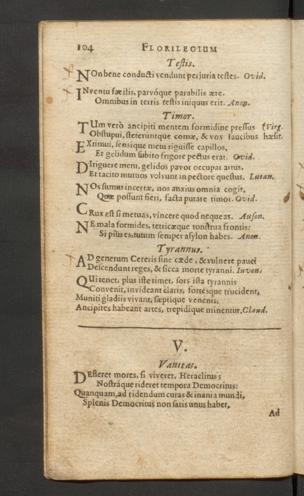 104 FLORILEGIUM
Testis.
NOn bene conducti vendunt perjuria testes. Ovid.
INventu facilis, parvóque parabilis ære.
Omnibus in terris testis iniquus erit. Anon.
Timor.
TUm verò ancipiti mentem formidine pressus Virg.
Obstupui, steteruntque comæ, & vox faucibus hæsit.
EXtimui, sensique metu riguisse capillos,
Et gelidum subito frigore pectus erat. Ovid.
DIriguere metu, gelidos pavor occupat artus.
Et tacito mutuos volvunt in pectore questus. Lucan.
NOs sumus incertæ, nos anxius omnia cogit,
Quæ possunt fieri, facta putare timor. Ovid.
CRux est si metuas, vincere quod nequeas. Auson.
NE mala formides, tetricæque tonstrua frontis:
Si pius es, tutum semper asylon habes. Anon.
Tyrannus.
AD generum Cereris sine cæde, & vulnere pauci
Descendunt reges, & sicca morte tyranni. Iuven.
QUi tenet, plus iste timet, sors ista tyrannis
Convenit, invideant claris, fortésque trucident,
Muniti gladiis vivant, septique venenis,
Ancipites habeant artes, trepidique minentur. Claud.
V.
Vanitas.
DEfleret mores, si viveret, Heraclitus;
Nostráque rideret tempora Democritus:
Quanquam, ad ridendum curas & inania mundi,
Splenis Democritus non satis unus habet,
Ad